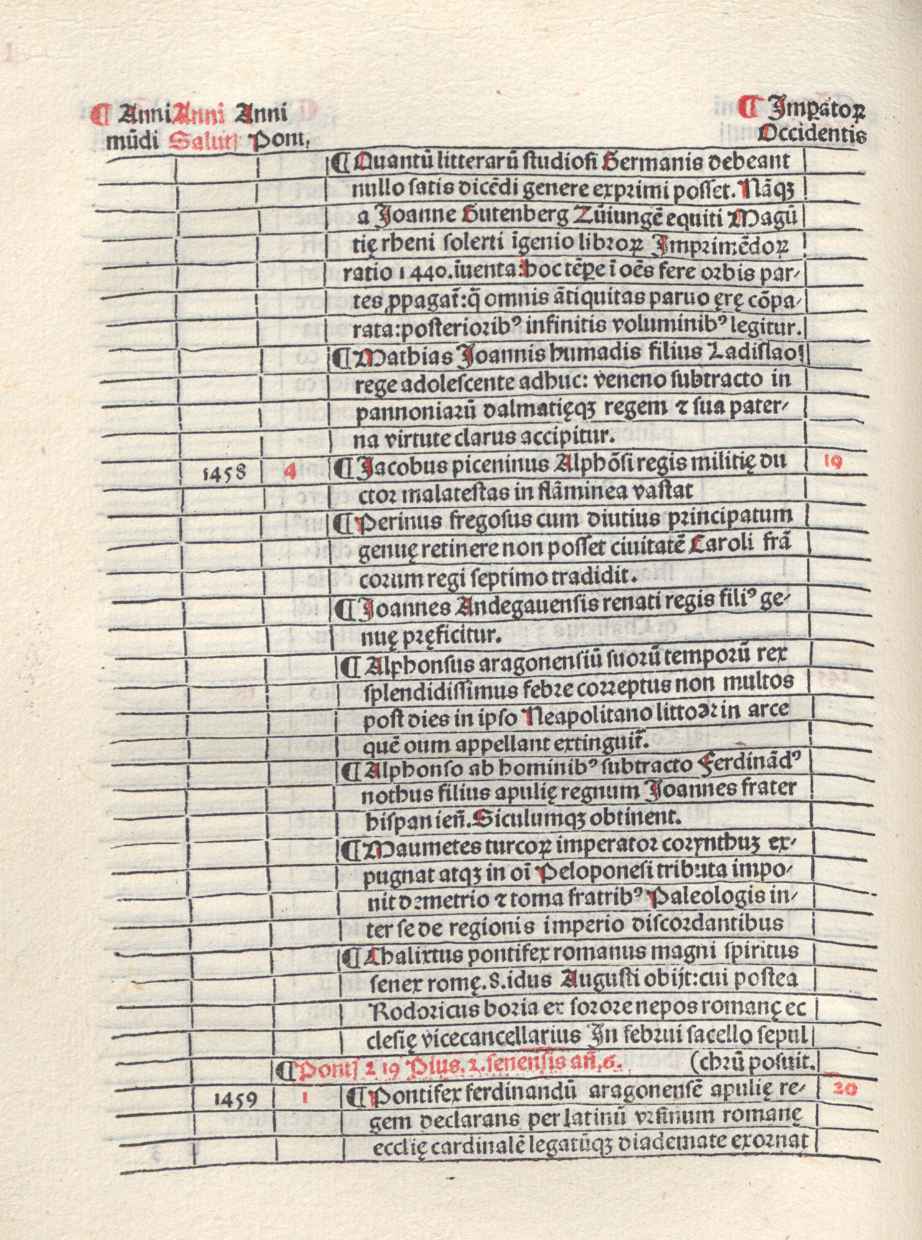 ¶ Anni Anni Anni ¶ Impatoꝝ
mūdi Salutꝭ Pont. Occidentis
¶ Quantū litterarū studiosi Germanis debeant
nullo satis dicēdi genere exprimi posset. Nāqꝫ
a Joanne Gutenberg Zūiungē equiti Magū
tię rheni solerti īgenio libroꝝ Imprimēdoꝝ
ratio 1440. īuenta: hoc tēpe ī oēs fere orbis par-
tes ꝓpagat̄: q̄ omnis ātiquitas paruo ęrę cōpa-
rata: posteriorib⁹ infinitis voluminib⁹ legitur.
¶ Mathias Joannis humadis filius Ladislao
rege adolescente adhuc: veneno subtracto in
pannoniarū dalmatięqꝫ regem ⁊ sua pater-
na virtute clarus accipitur.
1458 4 ¶ Jacobus piceninus Alphōsi regis militię du 19
ctor malatestas in flāminea vastat
¶ Perinus fregosus cum diutius principatum
genuę retinere non posset ciuitatē Caroli frā
corum regi septimo tradidit.
¶ Joannes Andegauensis renati regis fili⁹ ge-
nuę pręficitur.
¶ Alphonsus aragonensiū suorū temporū rex
splendidissimus febre correptus non multos
post dies in ipso Neapolitano littoꝛe in arce
quē oum appellant extinguit̄.
¶ Alphonso ab hominib⁹ subtracto Ferdinād⁹
nothus filius apulię regnum Joannes frater
hispanień. Siculumqꝫ obtinent.
¶ Maumetes turcoꝝ imperator corynthuꝫ ex-
pugnat atqꝫ in oī Peloponesi tributa impo-
nit demetrio ⁊ toma fratrib⁹ Paleologis in-
ter se de regionis imperio discordantibus
¶ Chalixtus pontifex romanus magni spiritus
senex romę. 8. idus Augusti obijt: cui postea
Rodoricus boria ex sorore nepos romanę ec
clesię vicecancellarius In februi sacello sepul
¶ Pontꝭ 219 Pius. 2. senensis añ. 6. (chrū posuit.
1459 1 ¶ Pontifex ferdinandū aragonensē apulię re- 20
gem declarans per latinū vrsinum romanę
ecclię cardinalē legatūqꝫ diademate exornat